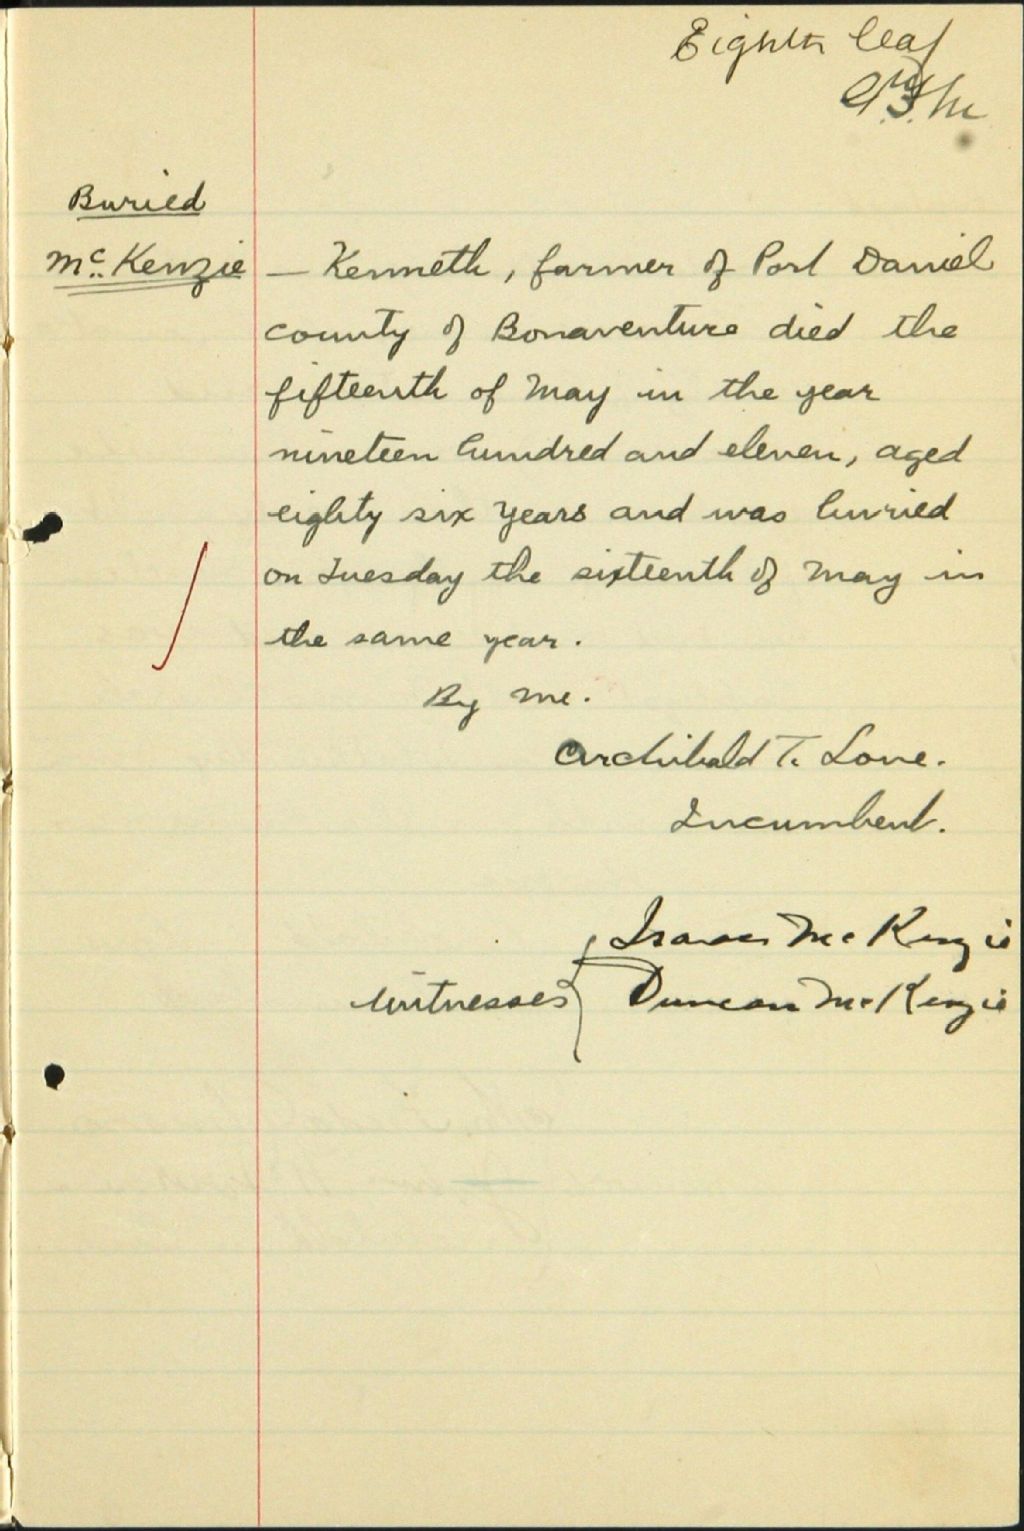 Eighth leaf
Buried
McKenzie — Kenneth, farmer of Port Daniel
county of Bonaventure died the
fifteenth of May in the year
nineteen hundred and eleven, aged
eighty six years and was buried
on Tuesday the sixteenth of May in
the same year.
By me.
Archibald T. Love.
Incumbent.
McKenzie
Witnesses Duncan McKenzie